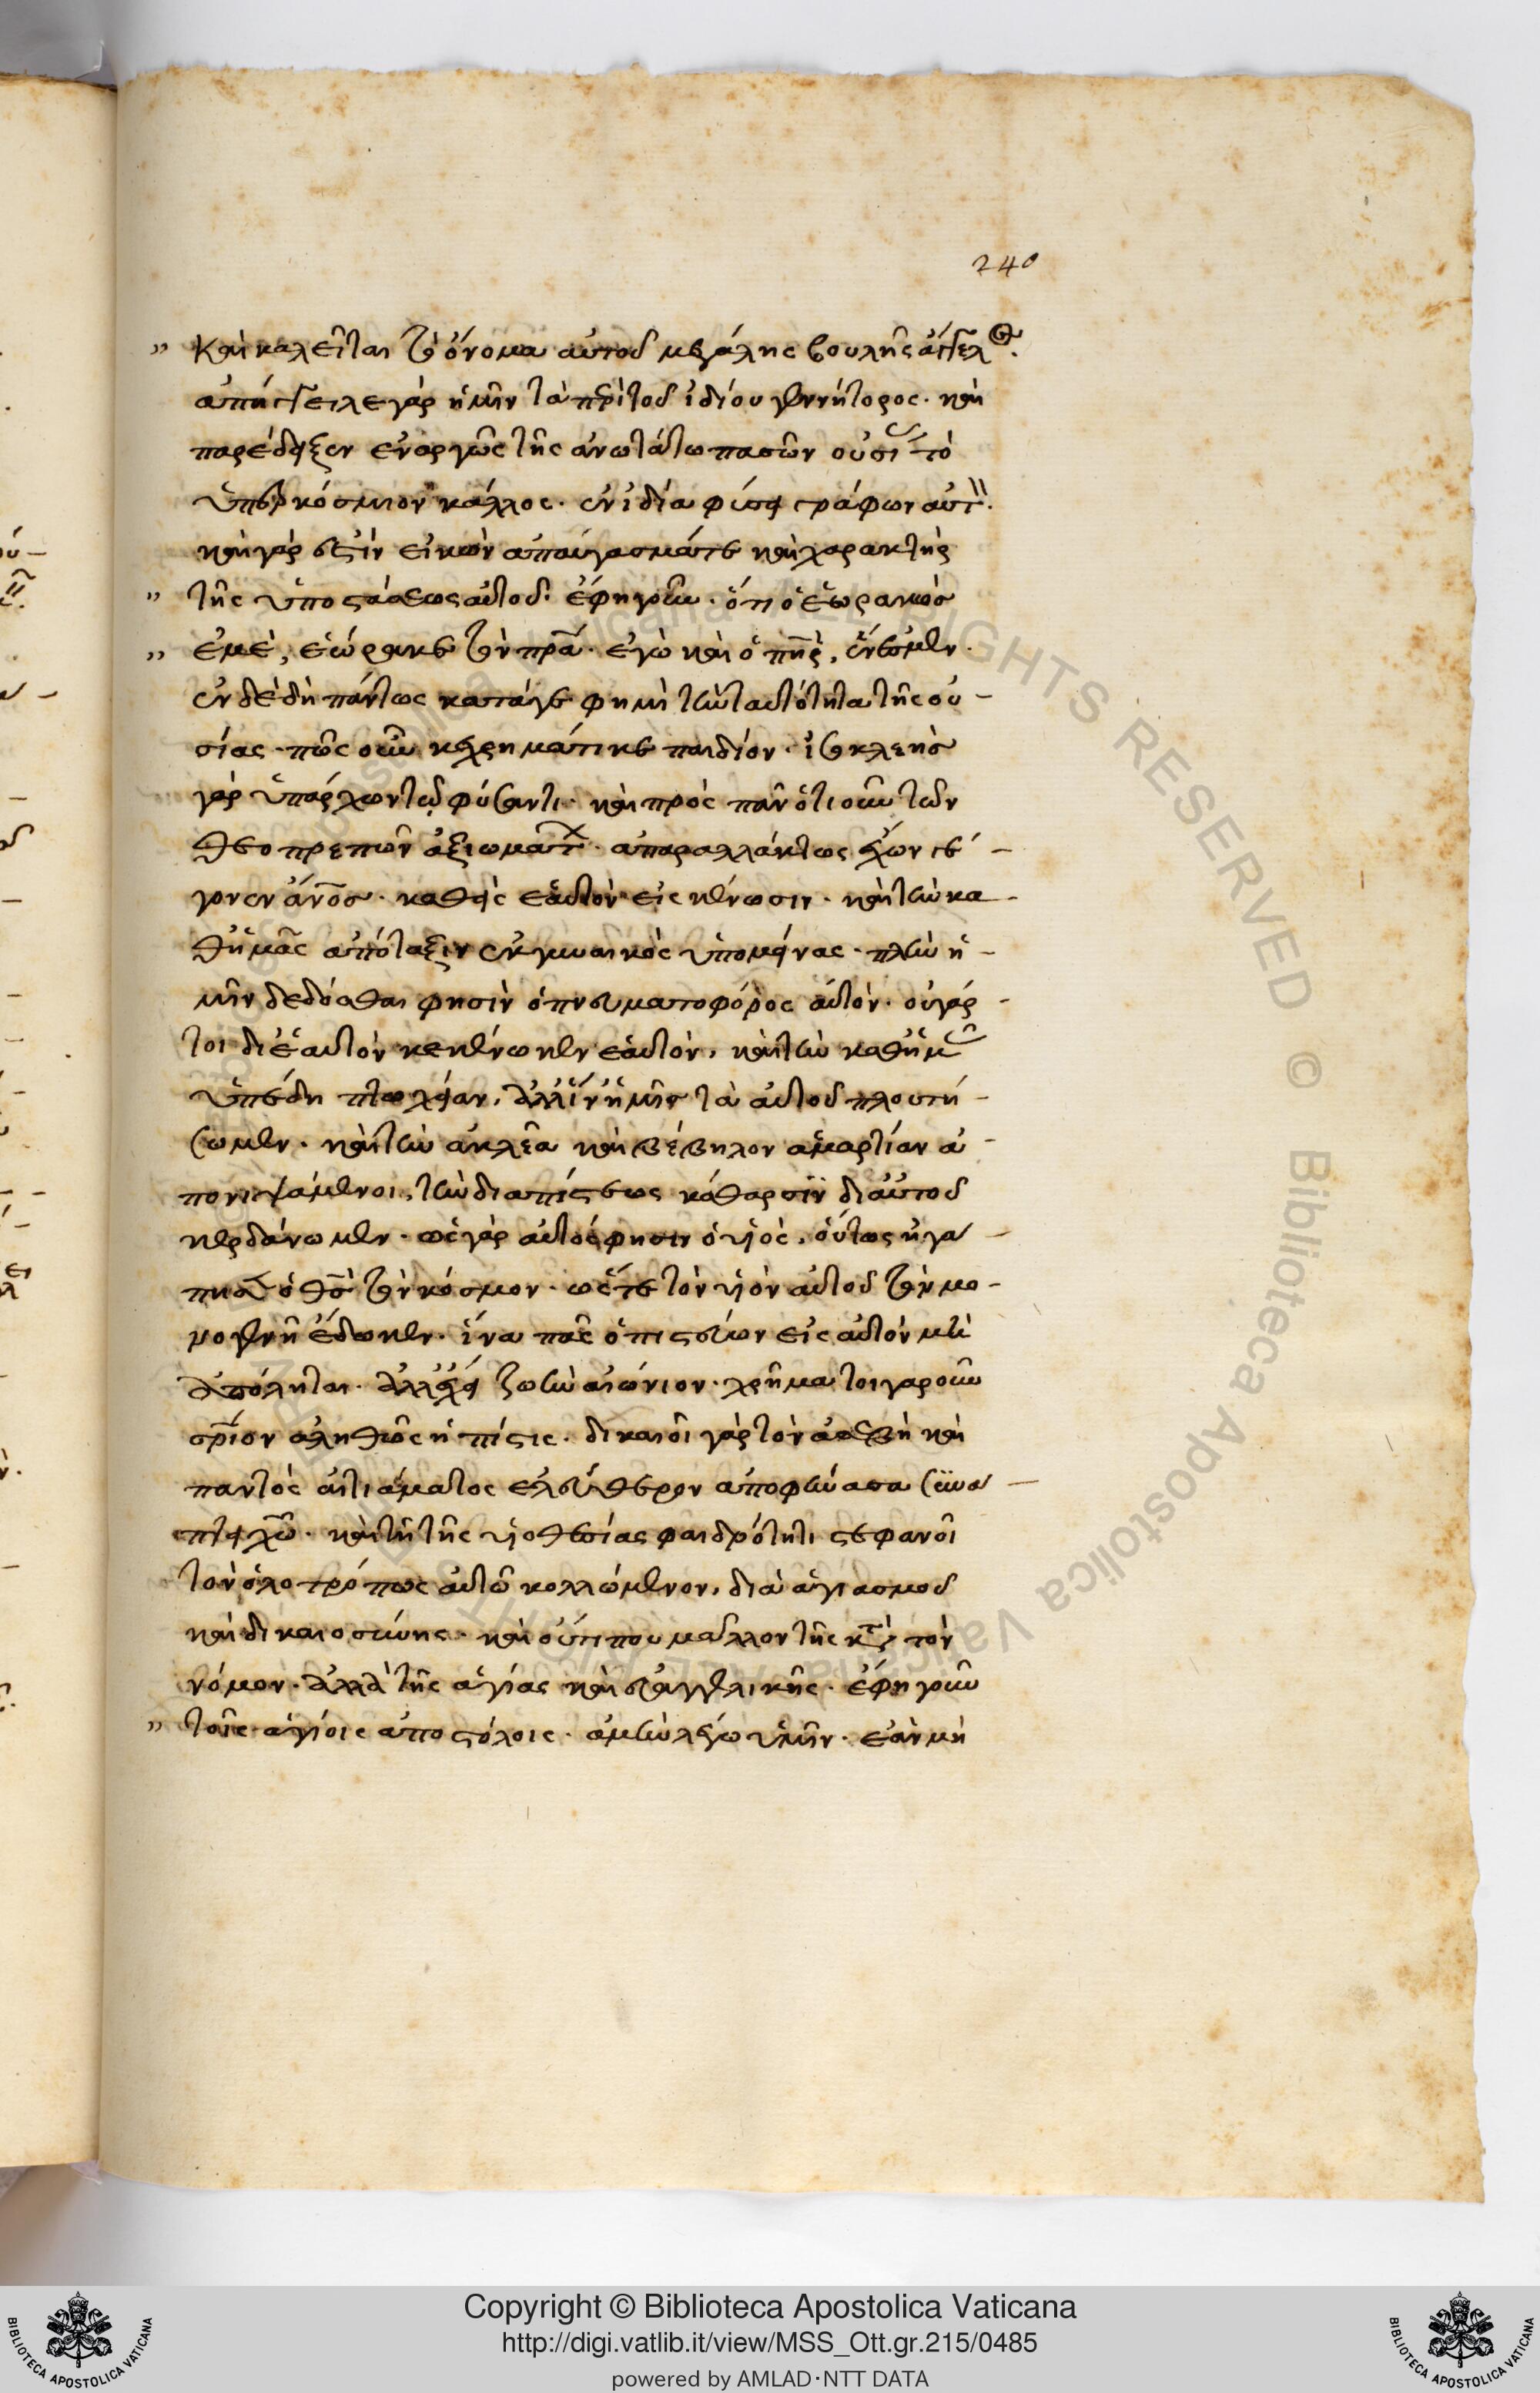 240
" καὶ καλεῖται τὸ ὄνομα αὐτοῦ μεγάλης βουλῆς ἄγγελος.
ἀπήγγειλε γὰρ ἡμῖν τὰ περὶ τοῦ ἰδίου γεννήτορος. καὶ
παρέδειξεν ἐναργῶς τῆς ἀνωτάτω πασῶν οὐσίας τὸ
ὑπερκόσμιον κάλλος. ἐν ἰδίᾳ φύσει γράφων αὐτό.
καὶ γάρ ἐστιν εἰκὼν ἀπαύγασμά τε καὶ χαρακτὴρ
" τῆς ὑποστάσεως αὐτοῦ. ἔφη γοῦν. ὅτι ὁ ἑωρακὼς
" ἐμὲ, ἑώρακε τὸν πρα. ἐγὼ καὶ ὁ πηρ, ἕν ἐσμεν.
ἓν δὲ δὴ πάντως κατά γε φημὶ τὴν ταυτότητα τῆς οὐ-
σίας. πῶς οὖν κεχρημάτικε παιδίον. ἰσοκλεὴς
γὰρ ὑπάρχων τῷ φύσαντι. καὶ πρὸς πᾶν ὁτιοῦν τῶν
θεοπρεπῶν ἀξιωμάτων. ἀπαραλλάκτως ἔχων γέ-
γονεν ανος. καθεὶς ἑαυτὸν εἰς κένωσιν. καὶ τὴν κα
θ' ἡμᾶς ἀπότεξιν ἐκ γυναικὸς ὑπομείνας. πλὴν ἡ-
μῖν δεδόσθαι φησὶν ὁ πνευματοφόρος αὐτόν. οὐ γάρ
τοι δι' ἑαυτὸν κεκένωκεν ἑαυτόν, καὶ τὴν καθ' ἡμᾶς
ὑπέδυ πτωχείαν, ἀλλ' ἵν' ἡμεῖς τὰ αὐτοῦ πλουτή-
σωμεν. καὶ τὴν ἀκλεᾶ καὶ βέβηλον ἁμαρτίαν ἀ-
πονιψάμενοι, τὴν διὰ πίστεως κάθαρσιν δι' αὐτοῦ
κερδάνωμεν. ὡς γὰρ αὐτός φησιν ὁ υἱὸς, οὕτως ἠγά-
πησεν ὁ θς τὸν κόσμον. ὥστε τὸν υἱὸν αὐτοῦ τὸν μο-
νογενῆ ἔδωκεν. ἵνα πᾶς ὁ πιστεύων εἰς αὐτὸν μὴ
ἀπόληται. ἀλλ' ἔχῃ ζωὴν αἰώνιον. χρῆμα τοιγαροῦν
σρίον ἀληθῶς ἡ πίστις. δικαιοῖ γὰρ τὸν ἀσεβῆ καὶ
παντὸς αἰτιάματος ἐλεύθερον ἀποφήνασα συνα-
πτει χῷ. καὶ τῇ τῆς υἱοθεσίας φαιδρότητι στεφανοῖ
τὸν ὁλοτρόπως αὐτῷ κολλώμενον, διὰ ἁγιασμοῦ
καὶ δικαιοσύνης. καὶ οὔτι που μᾶλλον τῆς κατὰ τὸν
νόμον. ἀλλὰ τῆς ἁγίας καὶ εὐαγγελικῆς. ἔφη γοῦν
" τοῖς ἁγίοις ἀποστόλοις. ἀμὴν λέγω ὑμῖν. ἐὰν μὴ
Copyright © Biblioteca Apostolica Vaticana
http://digi.vatlib.it/view/MSS_Ott.gr.215/0485
powered by AMLAD·NTT DATA